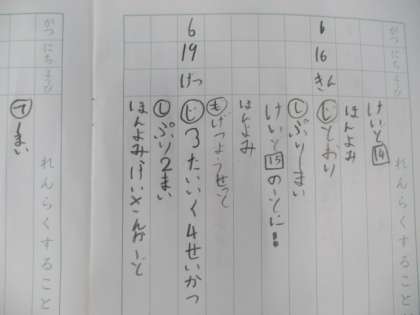 がつ にち ようび れんらくすること
けいど14
ほんよみ
6 16 きん
じ とおり
し ぷり1まい
けいど15のーとに!!
ほんよみ
も げつようせっと
6 19 げつ
じ 3たいいく4せいかつ
し ぷり2まい
ほんよみ けいさんかーど
がつ にち ようび れんらくすること
て 1まい